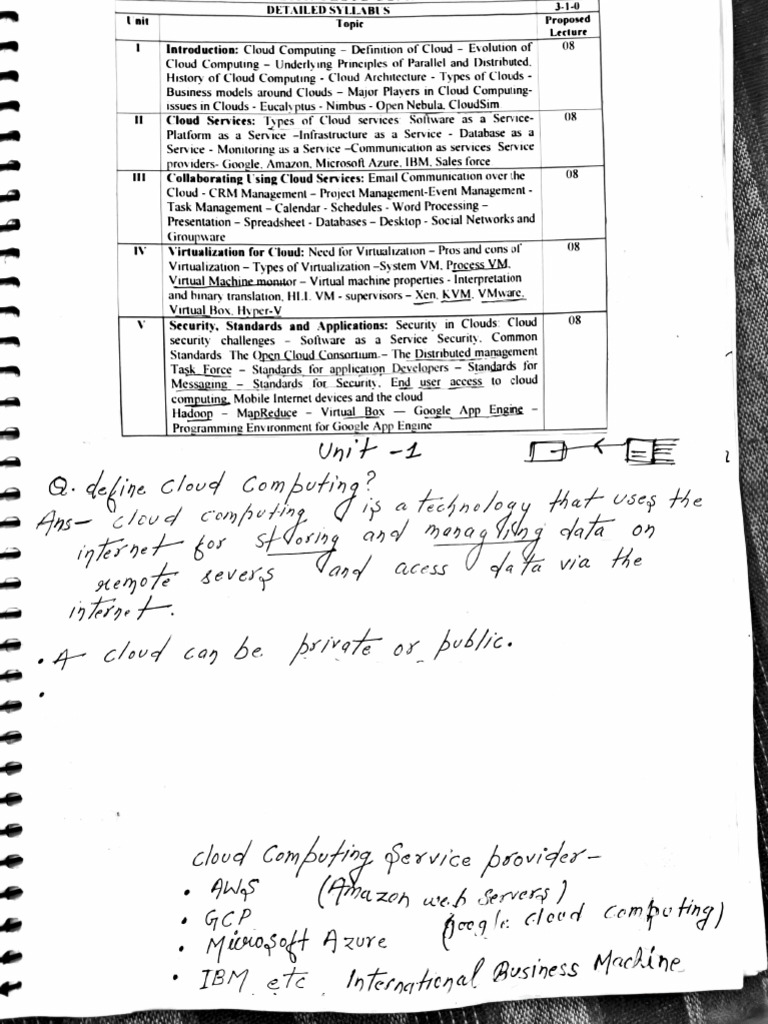 DETAILED SYLLABUS 3-1-0
Unit Topic Proposed Lecture
I Introduction: Cloud Computing – Definition of Cloud – Evolution of 08
Cloud Computing – Underlying Principles of Parallel and Distributed,
History of Cloud Computing - Cloud Architecture - Types of Clouds -
Business models around Clouds – Major Players in Cloud Computing-
issues in Clouds - Eucalyptus - Nimbus - Open Nebula, CloudSim
II Cloud Services: Types of Cloud services Software as a Service- 08
Platform as a Service –Infrastructure as a Service - Database as a
Service - Monitoring as a Service –Communication as services Service
providers- Google, Amazon, Microsoft Azure, IBM, Sales force
III Collaborating Using Cloud Services: Email Communication over the 08
Cloud - CRM Management – Project Management-Event Management -
Task Management – Calendar - Schedules - Word Processing –
Presentation – Spreadsheet - Databases – Desktop - Social Networks and
Groupware
IV Virtualization for Cloud: Need for Virtualization – Pros and cons of 08
Virtualization – Types of Virtualization –System VM, Process VM,
Virtual Machine monitor – Virtual machine properties - Interpretation
and binary translation, HLL VM - supervisors – Xen, KVM, VMware,
Virtual Box, Hyper-V
V Security, Standards and Applications: Security in Clouds: Cloud 08
security challenges – Software as a Service Security, Common
Standards The Open Cloud Consortium – The Distributed management
Task Force – Standards for application Developers – Standards for
Messaging – Standards for Security, End user access to cloud
computing, Mobile Internet devices and the cloud
Hadoop – MapReduce – Virtual Box — Google App Engine –
Programming Environment for Google App Engine
Unit -1
Q. define cloud Computing?
Ans- cloud computing is a technology that uses the
internet for storing and managing data on
remote severs and acess data via the
internet.
• A cloud can be private or public.
•
Cloud Computing Service provider-
• AWS (Amazon web servers)
• GCP (google cloud computing)
• Microsoft Azure
• IBM etc International Business Machine